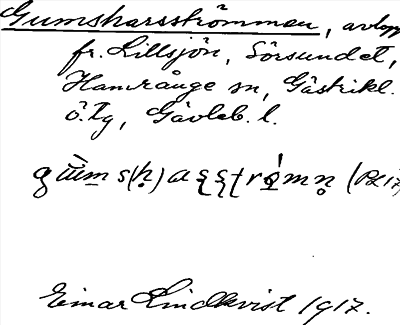 Gumsharsströmmen, avlopp
fr. Lillsjön, Sörsundet,
Hamrånge sn, Gästrikl.
ö. Tg, Gävleb. l.
Einar Lindkvist 1917.